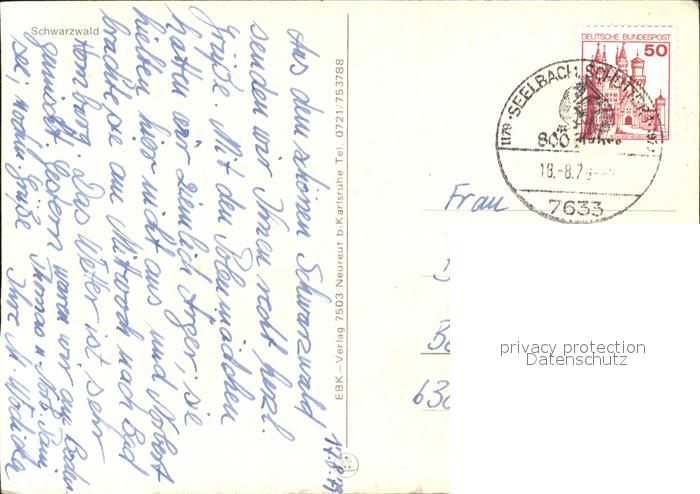 Schwarzwald
17.8.79
Aus dem schönen Schwarzwald
senden wir Ihnen recht herzl.
Grüße. Mit den Polenmädchen
hatten wir ziemlich Ärger, sie
hielten hier nicht aus und Norbert
brachte sie am Mittwoch nach Bad
Homburg. Das Wetter ist sehr
gemischt. Gestern waren wir am Boden-
see, Thomas u.
Grüße Ihre
EBK-Verlag 7503 Neureut b. Karlsruhe Tel. 0721/753788
DEUTSCHE BUNDESPOST
50
1179 · SEELBACH, SCHUTTERTAL
800
18.-8.79
7633
Frau
B
630
privacy protection
Datenschutz